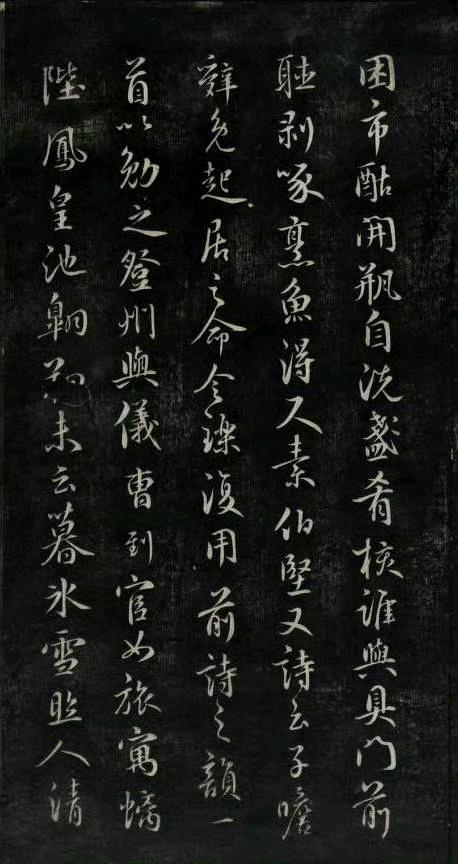 困市酤開瓶自洗盞肴核誰與具門前
聽剥啄烹魚得尺素伯堅又詩云子瞻
辭免起居之命令復用前詩之韻一
首以勉之登州與儀曹到官如旅寓螭
陛鳳皇池翱翔未云暮氷雪照人清